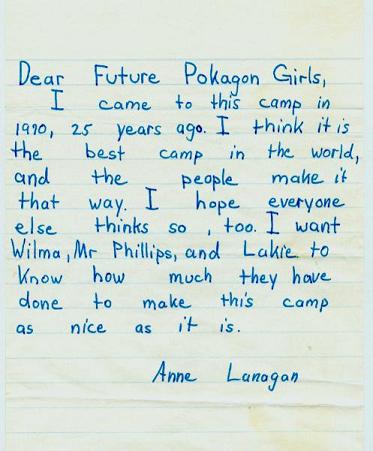 Dear Future Pokagon Girls,
I came to this camp in
1990, 25 years ago. I think it is
the best camp in the world,
and the people make it
that way. I hope everyone
else thinks so, too. I want
Wilma, Mr Phillips, and Lakie to
Know how much they have
done to make this camp
as nice as it is.
Anne Lanagan